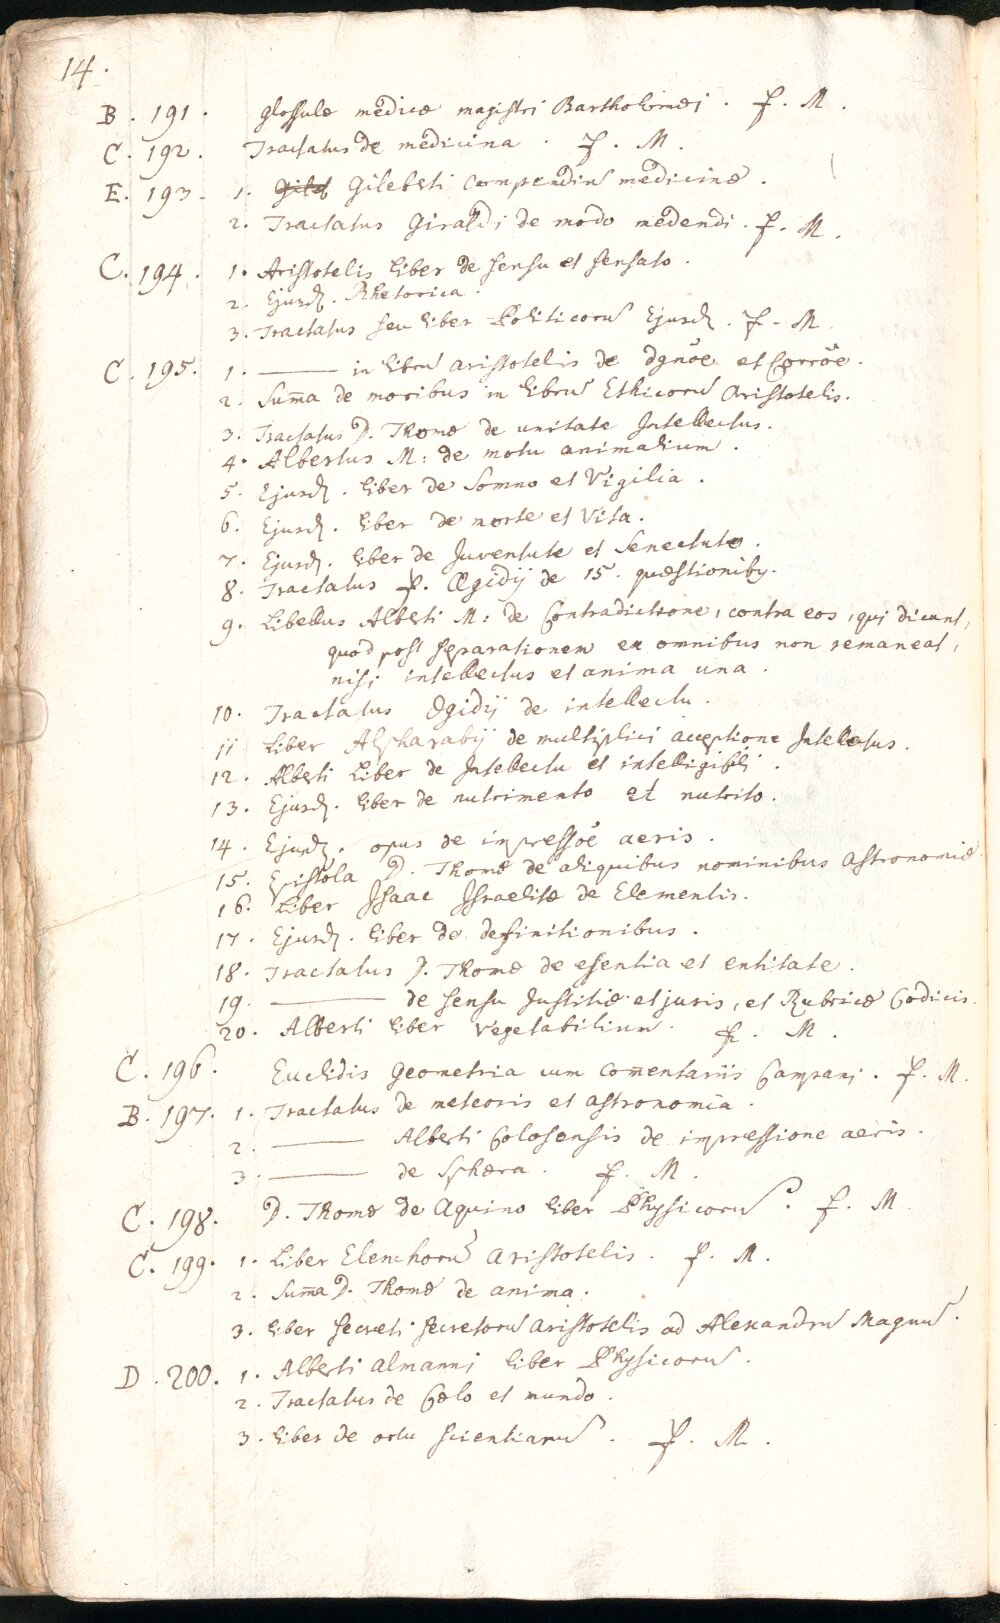 14.
B. 191. Glossulæ medicæ magistri Bartholomæi. f. M.
C. 192. Tractatus de medicina. f. M.
E. 193. 1. Gileberti Compendiū medicinæ.
2. Tractatus Giraldi de modo medendi. f. M.
C. 194. 1. Aristotelis liber de sensu et sensato.
2. Ejusd. Rhetorica.
3. Tractatus seu liber Politicorū Ejusd. f. M.
C. 195. 1. ——— in librū aristotelis de gnōe et Corrōe.
2. Sum̄a de moribus in librū Ethicorū Aristotelis.
3. Tractatus D. Thomæ de unitate Intellectus.
4. Albertus M: de motu animalium.
5. Ejusd. liber de Somno et Vigilia.
6. Ejusd. liber de morte et Vita.
7. Ejusd. liber de Juventute et Senectute.
8. Tractatus f. Ægidij de 15. quæstionibꝫ.
9. Libellus Alberti M: de Contradictione, contra eos, qui dicunt,
quod post separationem ex omnibus non remaneat,
nisi intellectus et anima una.
10. Tractatus Ægidij de intellectu.
11 Liber Alpharabij de multiplici acceptione Intellectus.
12. Alberti Liber de Intellectu et intelligibili.
13. Ejusd. liber de nutrimento et nutrito.
14. Ejusd. opus de impressōe aeris.
15. Epistola D. Thomæ de aliquibus nominibus astronomiæ.
16. Liber Isaac Israelitæ de Elementis.
17. Ejusd. liber de definitionibus.
18. Tractatus D. Thomæ de esentia et entitate.
19. ——— de sensu Justitiæ et juris, et Rubricæ Codicis.
20. Alberti liber Vegetabilium. f. M.
C. 196. Euclidis Geometria cum Com̄entariis Campani. f. M.
B. 197. 1. Tractatus de meteoris et astronomia.
2. ——— Alberti Colosensis de impressione aeris.
3. ——— de Sphæra. f. M.
C. 198. D. Thomæ de Aquino liber Physicorū. f. M.
C. 199. 1. Liber Elenchorū aristotelis. f. M.
2. Sum̄a D. Thomæ de anima.
3. Liber secreti secretorū aristotelis ad Alexandrū Magnū.
D. 200. 1. Alberti almanni liber Physicorū.
2. Tractatus de Cælo et mundo.
3. Liber de ortu scientiarū. f. M.